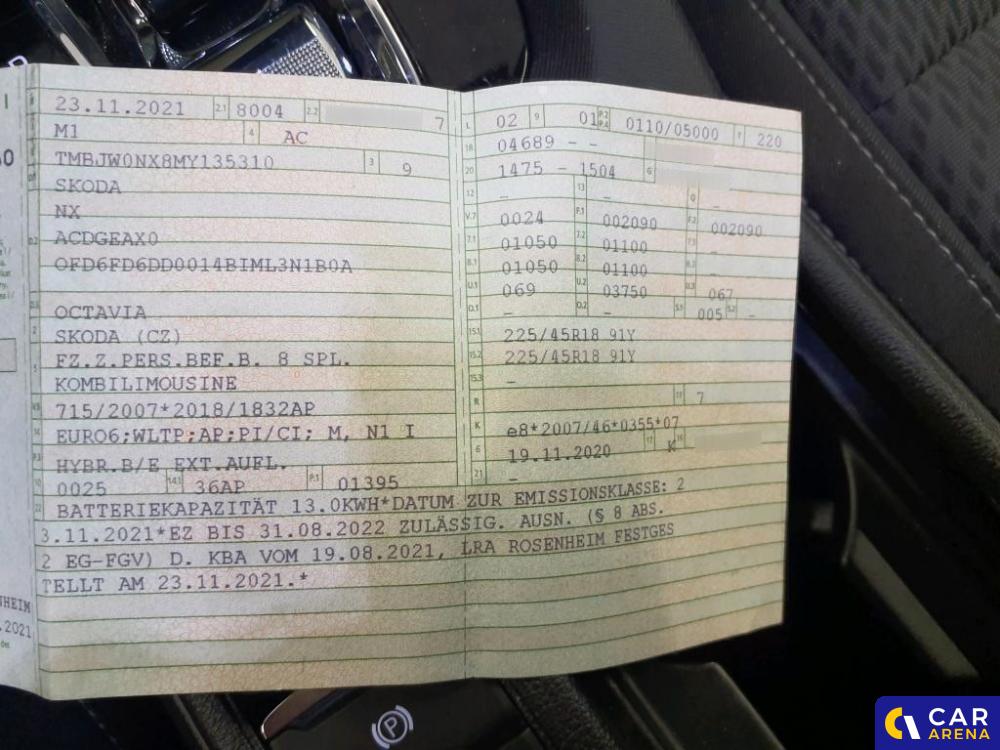 23.11.2021 2.1 8004 2.2 7
M1 4 AC
TMBJW0NX8MY135310 3 9
SKODA
NX
D.2 ACDGEAX0
OFD6FD6DD0014BIML3N1B0A
D.3 OCTAVIA
2 SKODA (CZ)
5 FZ.Z.PERS.BEF.B. 8 SPL.
KOMBILIMOUSINE
V.9 715/2007*2018/1832AP
14 EURO6;WLTP;AP;PI/CI; M, N1 I
P.3 HYBR.B/E EXT.AUFL.
10 0025 14.1 36AP P.1 01395
L 02 9 01 P.2 P.4 0110/05000 T 220
18 04689 - -
20 1475 - 1504 G
12 - 13 - Q -
V.7 0024 F.1 002090 F.2 002090
7.1 01050 7.2 01100 7.3 -
8.1 01050 8.2 01100 8.3 -
U.1 069 U.2 03750 U.3 067
O.1 - O.2 - S.1 005 S.2 -
15.1 225/45R18 91Y
15.2 225/45R18 91Y
15.3 -
R 11 7
K e8*2007/46*0355*07
6 19.11.2020 17 K 16
21 -
22 BATTERIEKAPAZITÄT 13.0KWH*DATUM ZUR EMISSIONSKLASSE: 2
3.11.2021*EZ BIS 31.08.2022 ZULÄSSIG. AUSN. (§ 8 ABS.
2 EG-FGV) D. KBA VOM 19.08.2021, LRA ROSENHEIM FESTGES
TELLT AM 23.11.2021.*
NHEIM
.2021
P
CAR
ARENA